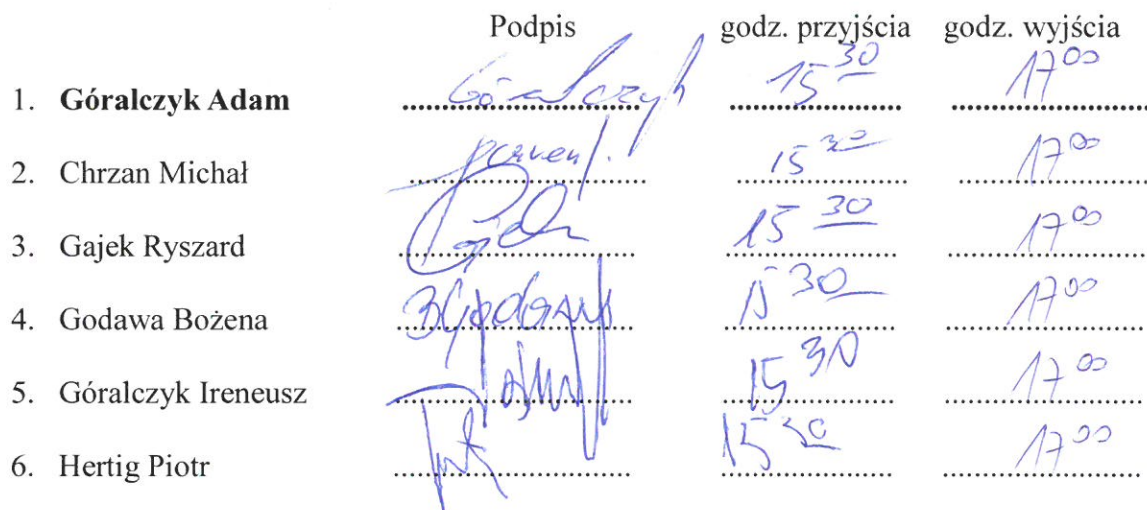 Podpis godz. przyjścia godz. wyjścia
1. Góralczyk Adam Góralczyk 15 30 17 00
2. Chrzan Michał 15 30 17 00
3. Gajek Ryszard 15 30 17 00
4. Godawa Bożena 15 30 17 00
5. Góralczyk Ireneusz 15 30 17 00
6. Hertig Piotr 15 30 17 00